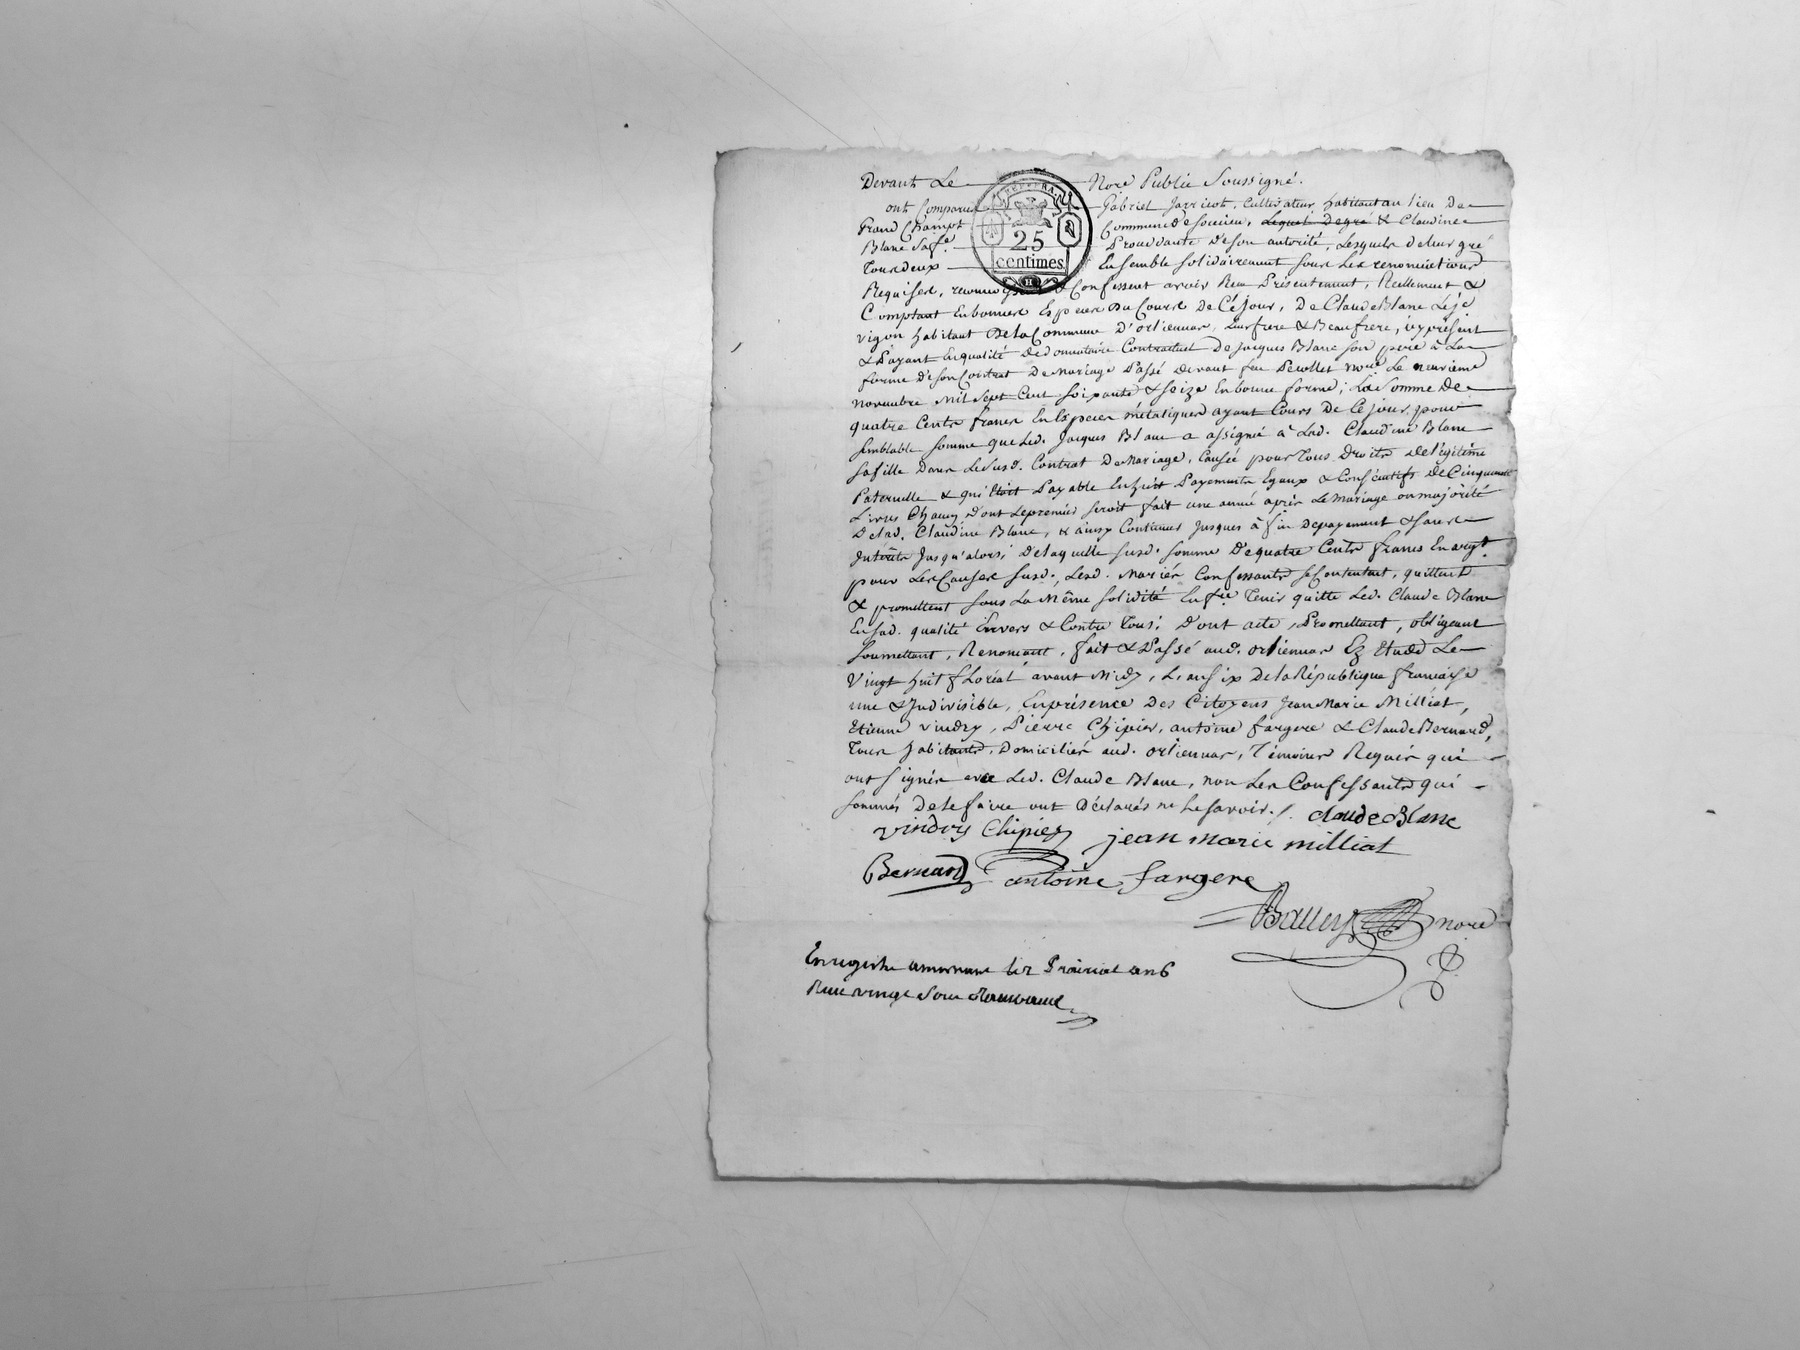 Devant Le Nore Public Soussigné.
ont Comparu Gabriel Jarricot, Cultivateur habitant au lieu De
Grand Champt Commune de Soucieu, Lequel Degré & Claudine
Blanc Sa fe. Prouvdante D'e son autorité, Lesquels de leur gré
Tous deux Ensemble solidairement sous Les renonciations
25
centimes
Requises, reconnoissent & Confessent avoir Reçu Présentement, Reellement &
Comptant En bonnes Especes Du Cours De Cé jour, De Claude Blanc
vigon habitant De La Commune D'orliennas, Leur frere & Beaufrere, icy présent
& Payant En qualité de donnataire Contractuel De jacques Blanc son pere à La
forme D'e son Contrat De Mariage Passé Devant feu Decollet nore Le neuvieme
novembre Mil Sept Cent soixante & seize En bonne forme; La Somme De
quatre Cents francs En Especes métaliques ayant Cours De Ce jour, pour
semblable somme que Led. Jacques Blanc a assigné à Lad. Claudine Blanc
sa fille Dans Le Susd. Contrat De Mariage, Causée pour Tous Droits De légitime
Paternelle & qui Etoit Payable En huit Payements Egaux & Consécutifs De Cinquante
Livres Chacun D'ont Le premier seroit fait une année après Le Mariage ou majorité
De Lad. Claudine Blanc, & ainsy Continues jusques à fin De payement & sans
Intérêts Jusqu'alors; De laquelle susd. somme De quatre Cents francs En argt.
pour Les Causes susd., Lesd. Mariés Confessants se Contentent, quittent
& promettent sous La Même solidité Enfre Tenir quitte Led. Claude Blanc
En sad. qualité Envers & Contre Tous; D'ont acte, Promettant, obligeant
soumettant, Renonçant, fait & Passé aud. orliennas Ez Etudes Le
Vingt huit floréal avant Midy, L'an six De la République française
une & Indivisible, En présence Des Citoyens Jean Marie Milliat,
Etienne Vindry, Pierre Chipier, antoine fargere & Claude Bernard,
Tous habitants, Domiciliés aud. orliennas, Témoins Requis qui
ont signés avec Led. Claude Blanc, non Les Confessants qui
sommés De le faire ont Déclarés ne Le savoir./. claude Blanc
vindry Chipier jean marie milliat
Bernard antoine fargere
nore
Enregistré a mornant le 2 Prairial an 6
Reçu vingt sous